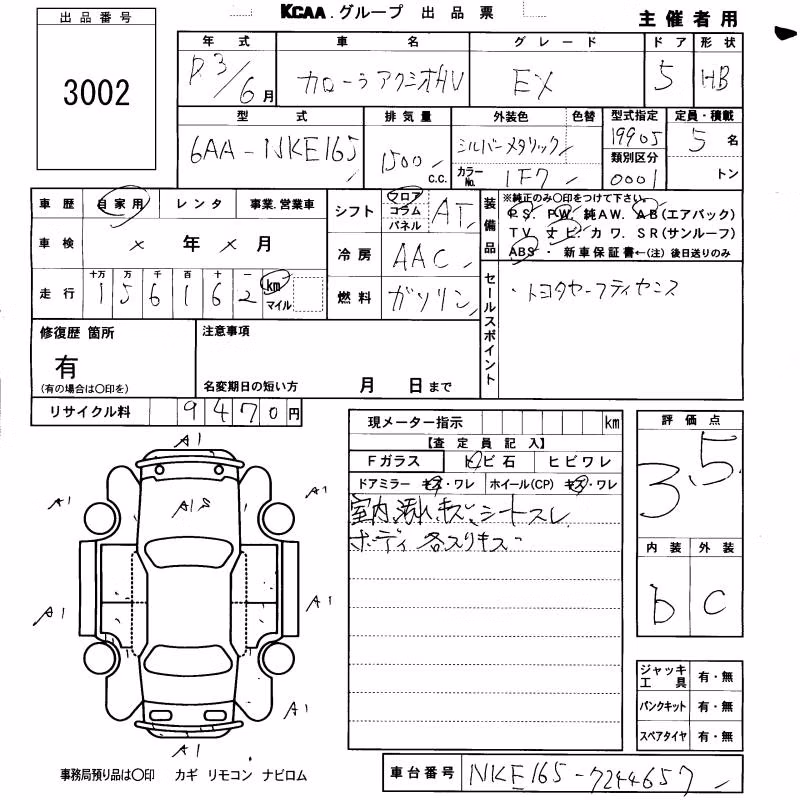 KCAA.グループ 出品票
主催者用
出品番号
3002
年式 車名 グレード ドア 形状
R.3/6月 カローラアクシオHV EX 5 HB
型式 排気量 外装色 色替 型式指定 定員・積載
6AA-NKE165 1500 C.C. シルバーメタリック 19905 5名
カラーNo. 1F7 類別区分 0001 トン
車歴 自家用 レンタ 事業.営業車
シフト フロア コラム パネル AT
車検 × 年 × 月
冷房 AAC
走行 十万 万 千 百 十 一
1 5 6 1 6 2 km マイル
燃料 ガソリン
装備品
※純正のみ○印をつけて下さい。
PS. PW. 純AW. AB(エアバック)
TV. ナビ. カワ. SR(サンルーフ)
ABS・ 新車保証書←(注) 後日送りのみ
セールスポイント
・トヨタセーフティセンス
修復歴 箇所
有
(有の場合は○印を)
注意事項
名変期日の短い方 月 日まで
リサイクル料 9470円
現メーター指示 km
【査定員記入】
Fガラス トビ石 ヒビワレ
ドアミラー キズ・ワレ ホイール(CP) キズ・ワレ
室内汚れ、キズ、シートスレ
ボディ各スリキズ
評価点
3.5
内装 外装
b C
A1
A1
A1
A1
A1
A1
A1
A1
A1
ジャッキ工具 有・無
パンクキット 有・無
スペアタイヤ 有・無
事務局預り品は○印 カギ リモコン ナビロム
車台番号 NKE165-7244657